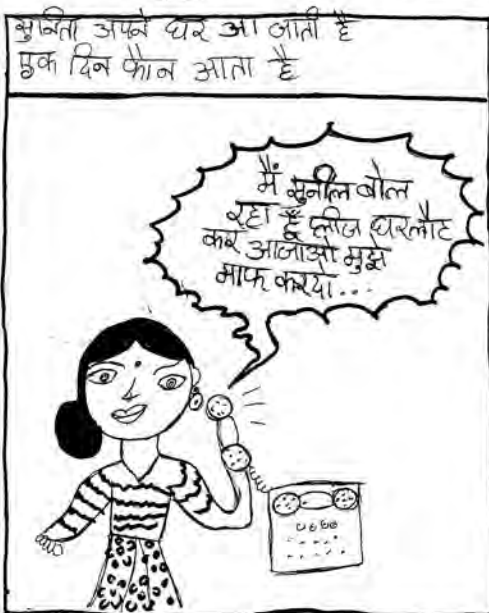 सुनिता अपने घर आ जाती है
एक दिन फोन आता है
मैं सुनील बोल
रहा हूँ प्लीज घरलौट
कर आजाओ मुझे
माफ करदो...